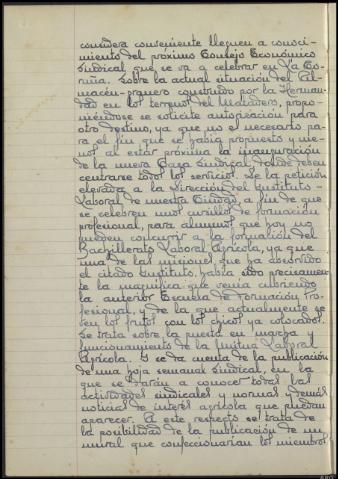 considera conveniente lleguen a conoci-
miento del próximo Consejo Económico
Sindical que se va a celebrar en La Co-
ruña. Sobre la actual situación del Al-
macén-granero construido por la Herman-
dad en los terrenos del Matadero, propo-
niéndose se solicite autorización para
otro destino, ya que no es necesario pa-
ra el fin que se había propuesto y me-
nos al estar próxima la inauguración
de la nueva Casa Sindical donde deben
centrarse todos los servicios. De la petición
elevada a la Dirección del Instituto
Laboral de nuestra Ciudad, a fin de que
se celebren unos cursillos de formación
profesional, para alumnos que hoy no
pueden concurrir a la formación del
Bachillerato Laboral Agrícola, ya que
una de las misiones que ha absorvido
el citado Instituto, había sido precisamen-
te la magnífica que venía cubriendo
la anterior Escuela de Formación Pro-
fesional, y de la que actualmente se
ven los frutos con los chicos ya colocados.
Se trata sobre la puesta en marcha
funcionamiento de la Mutua Laboral
Agrícola. Y se da cuenta de la publicación
de una hoja semanal Sindical, en la
que se darán a conocer todas las
actividades sindicales y normas y demás
noticias de interés agrícola que puedan
aparecer. A este respecto se trata de
la posibilidad de la publicación de un
mural que confeccionarían los miembros